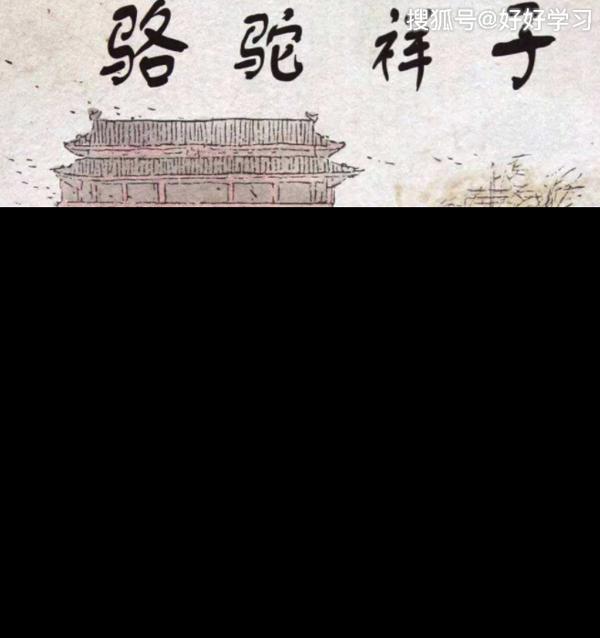 搜狐号@好好学习
骆驼祥子